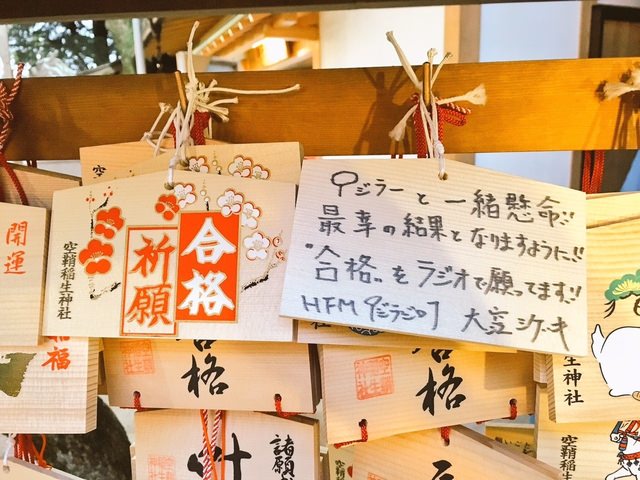 開運
空鞘稲生神社
祈願
合格
9ジラーと一緒懸命!!
最幸の結果となりますように!!
"合格"をラジオで願ってます!!
HFM 9ジラジロ 大窪シゲキ
招福
合格
合格
生神社
諸願
空鞘稲生